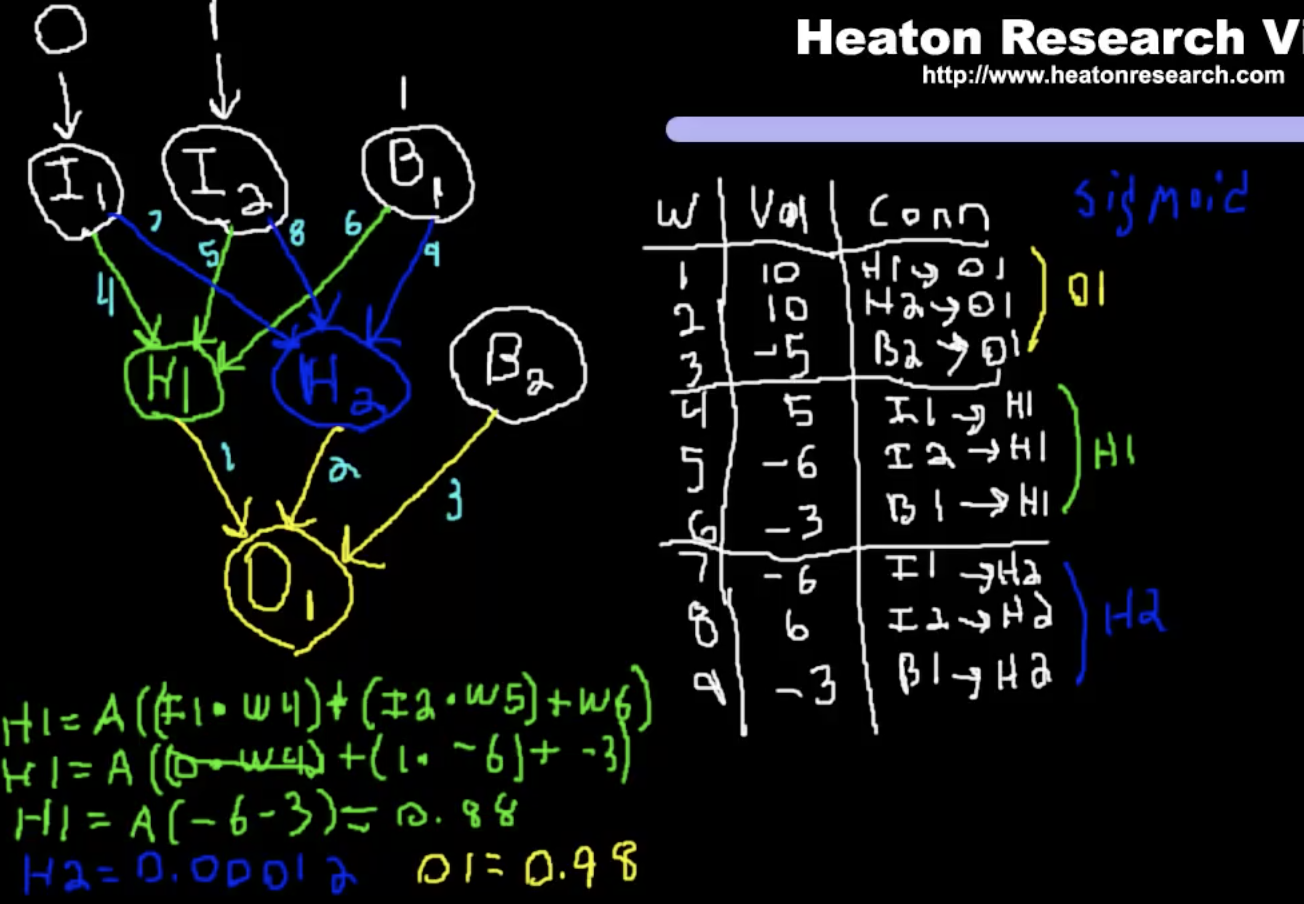 Heaton Research Vi
http://www.heatonresearch.com
0 1 1
I1 I2 B1
7 8 6 9
4 5
H1 H2 B2
1 2 3
O1
W Val Conn sigmoid
1 10 H1→O1
2 10 H2→O1 O1
3 -5 B2→O1
4 5 I1→H1
5 -6 I2→H1 H1
6 -3 B1→H1
7 -6 I1→H2
8 6 I2→H2 H2
9 -3 B1→H2
H1=A((I1•W4)+(I2•W5)+W6)
H1=A((0•W4)+(1•-6)+-3)
H1=A(-6-3)=0.88
H2=0.00012 O1=0.98